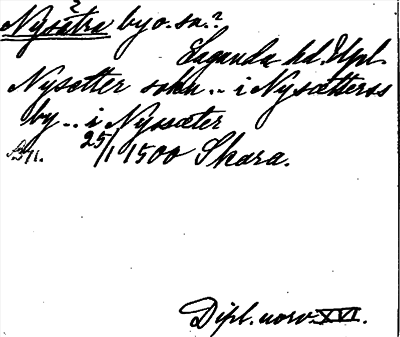 Nysätra by o. sn.?
Lagunda hd. Upl.
Nysetter sokn .. i Nysætterss
by .. i Nyssæter
25/1 1500 Skara.
Dipl. norv. XVI.